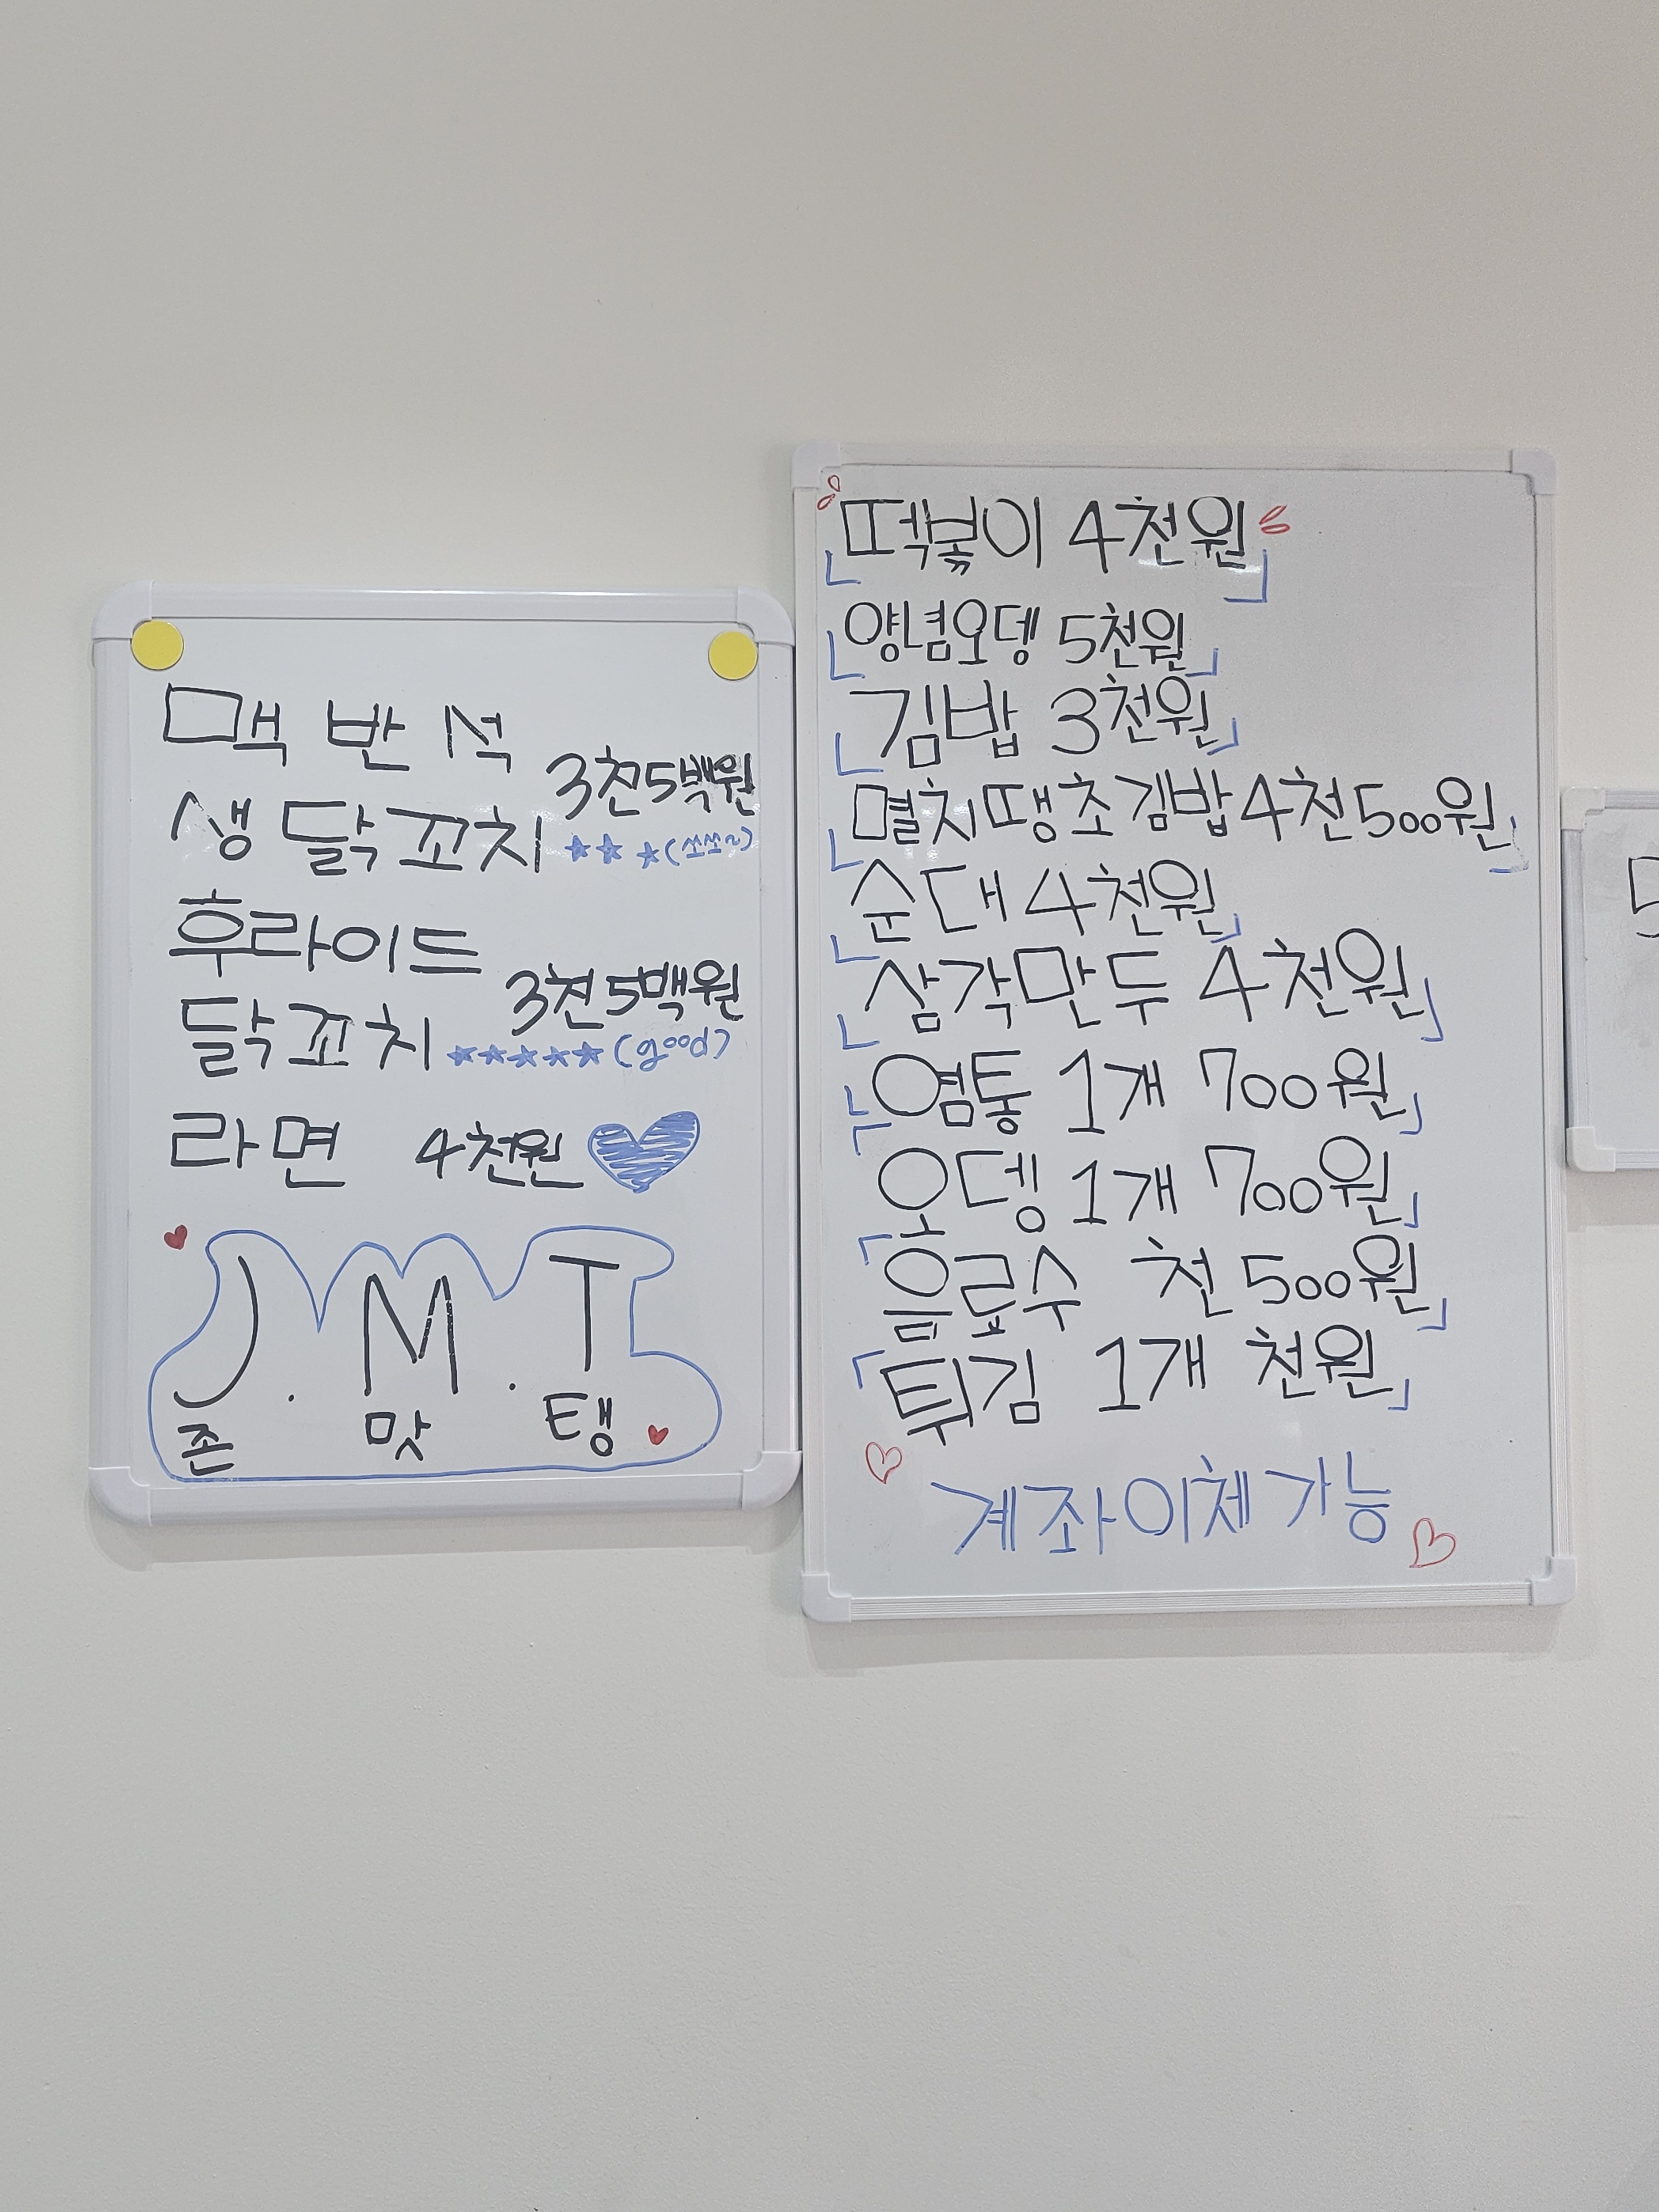 맥반석
생닭꼬치 3천5백원
★★★(쏘쏘~)
후라이드
닭꼬치 3천5백원
★★★★★(good)
라면 4천원
J.M.T
존 맛 탱
떡볶이 4천원
양념오뎅 5천원
김밥 3천원
멸치땡초김밥 4천500원
순대 4천원
삼각만두 4천원
염통 1개 700원
오뎅 1개 700원
음료수 천500원
튀김 1개 천원
계좌이체가능
5